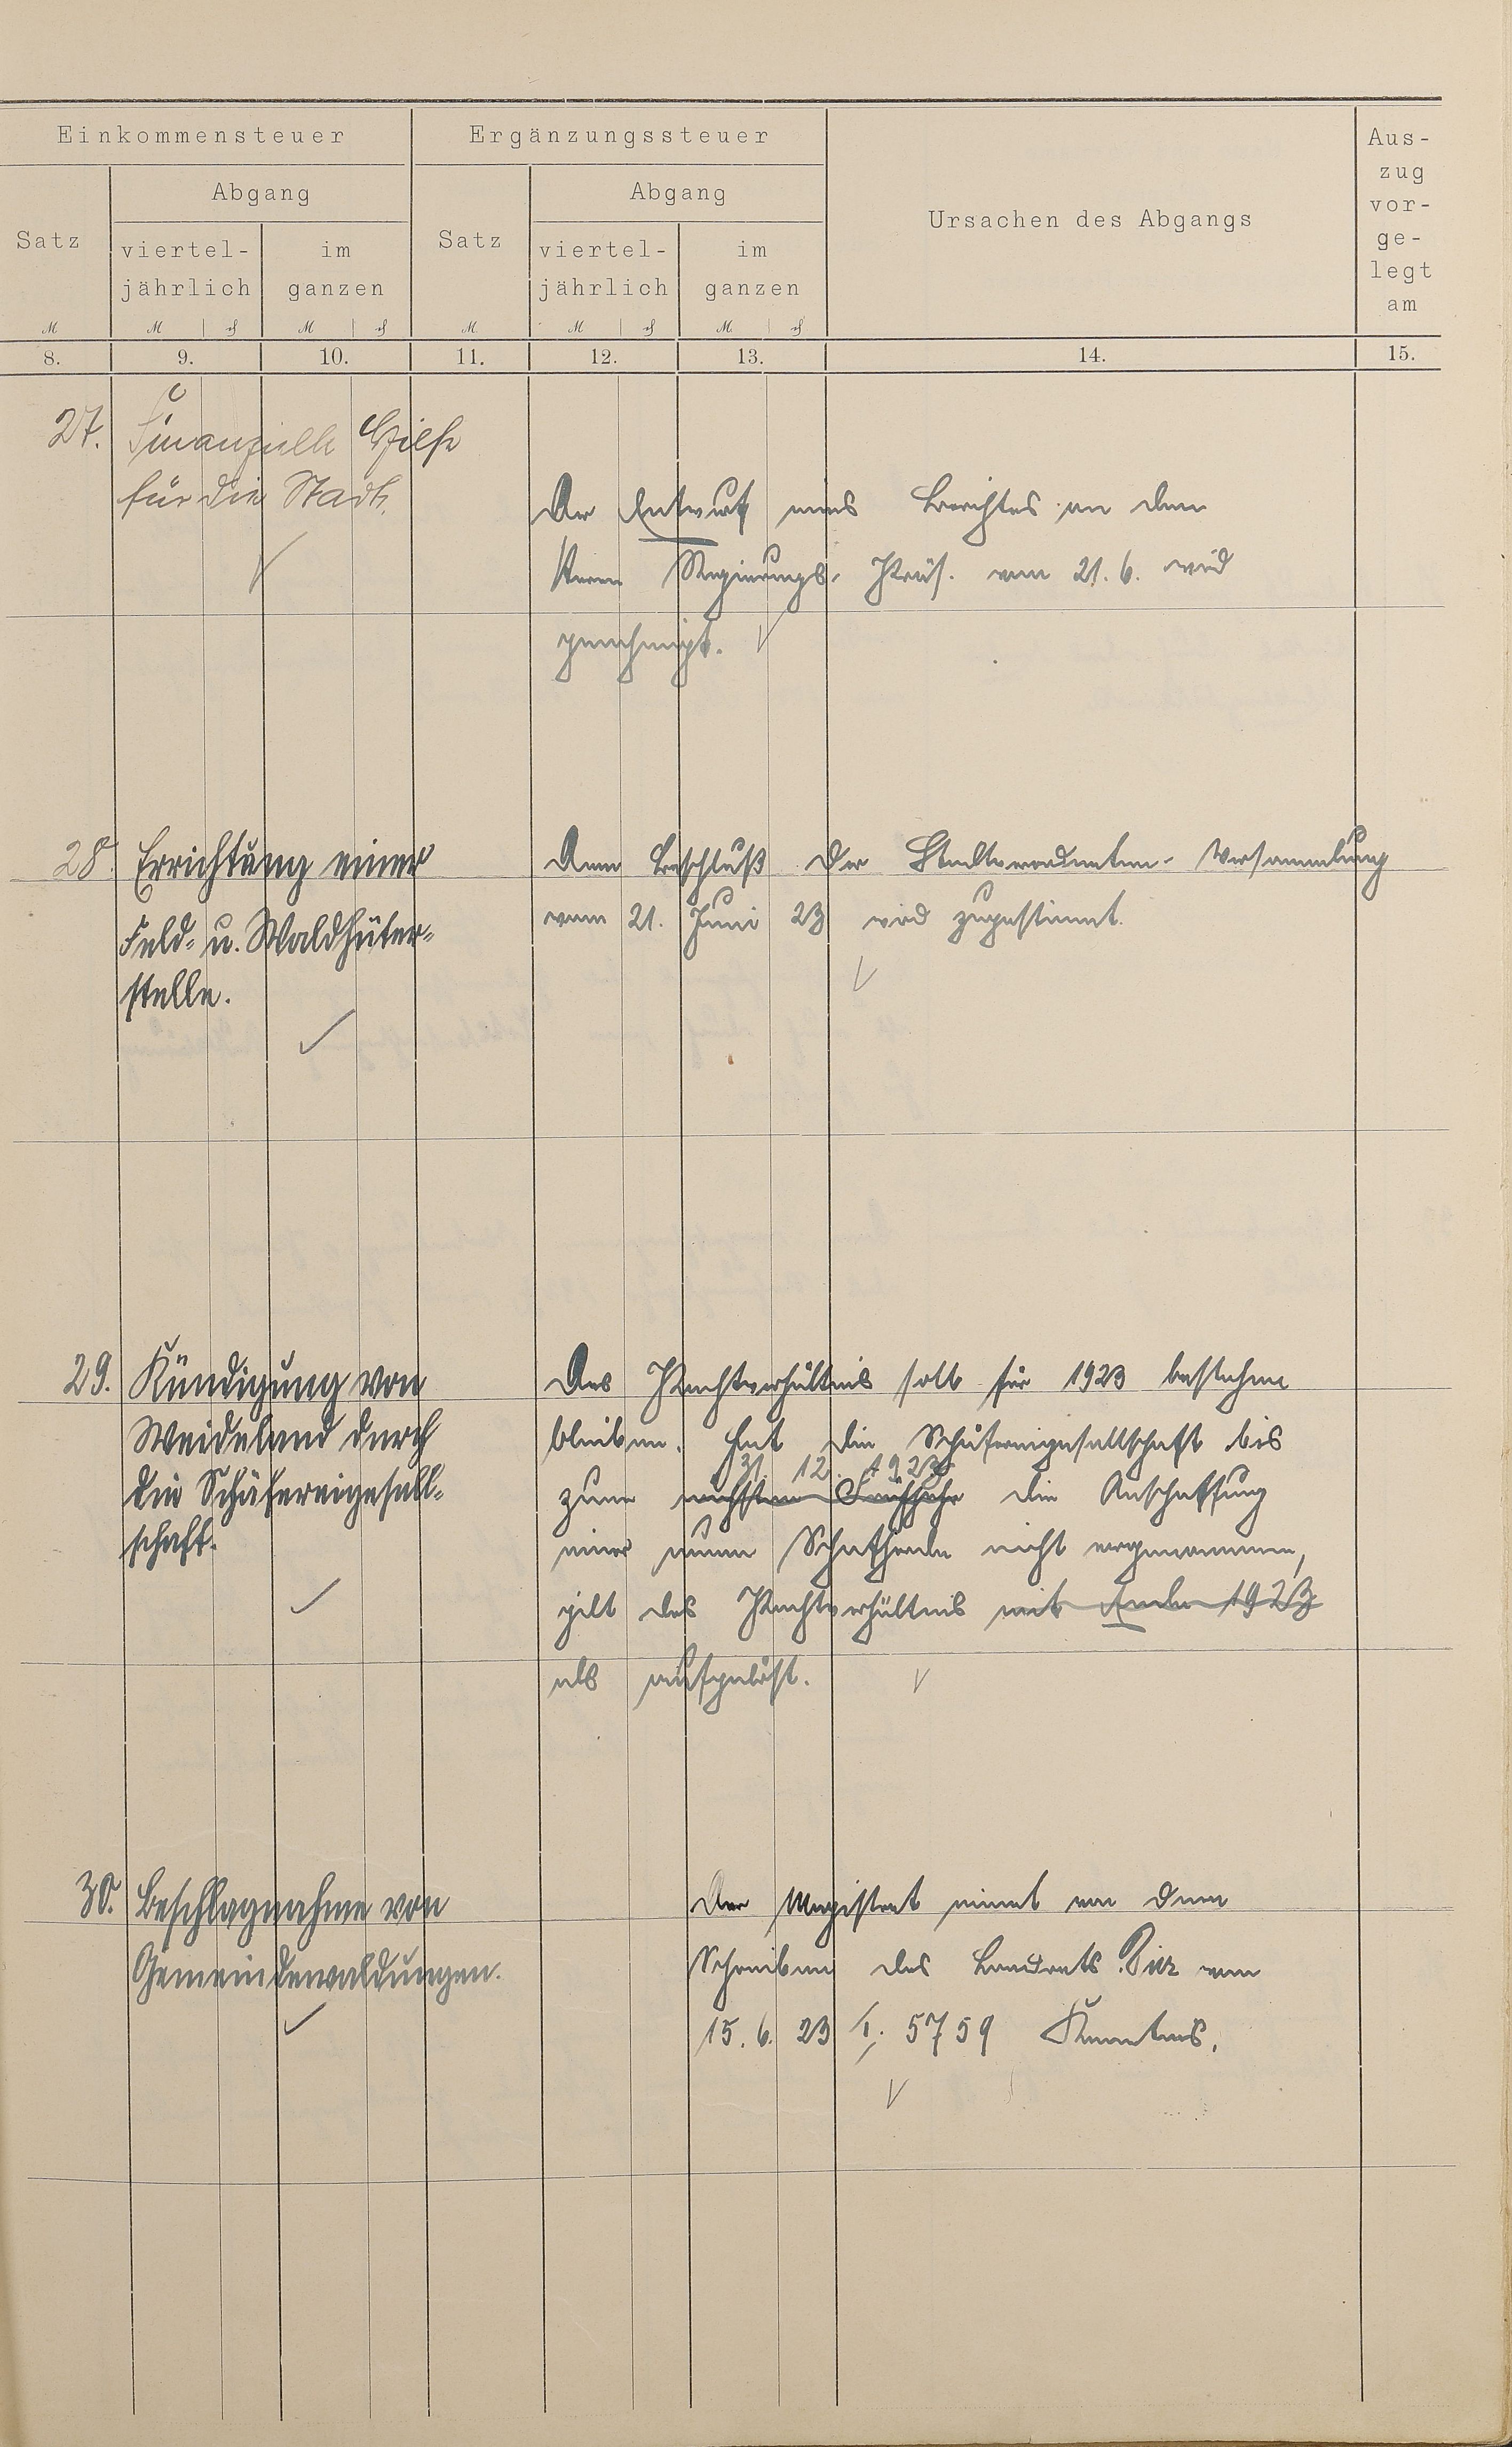 Einkommensteuer
Ergänzungssteuer
Ursachen des Abgangs
Aus-
zug
vor-
ge-
legt
am
Satz
Abgang
viertel-
jährlich
im
ganzen
Satz
Abgang
viertel-
jährlich
im
ganzen
M M ₰ M ₰ M M ₰ M ₰
8. 9. 10. 11. 12. 13. 14. 15.
27. Finanzielle Hilfe
für die Stadt.
Der Entwurf eines Berichtes an den
Herrn Regierungs-Präs. vom 21. 6. wird
genehmigt.
28. Errichtung einer
Feld- u. Waldhüter-
stelle.
Dem Beschluß der Stadtverordneten-Versammlung
vom 21. Juni 23 wird zugestimmt.
29. Kündigung von
Weideland durch
die Schäfereigesell-
schaft.
Das Pachtverhältnis soll für 1923 bestehen
bleiben. Hat die Schäfereigesellschaft bis
31. 12. 1923
zum nächsten Frühjahr die Anschaffung
einer neuen Schafherde nicht vorgenommen,
gilt das Pachtverhältnis mit Ende 1923
als aufgelöst.
30. Beschlagnahme von
Gemeindewaldungen.
Der Magistrat nimmt von dem
Schreiben des Landrats vom
15. 6. 23 I. 5759 Kenntnis.